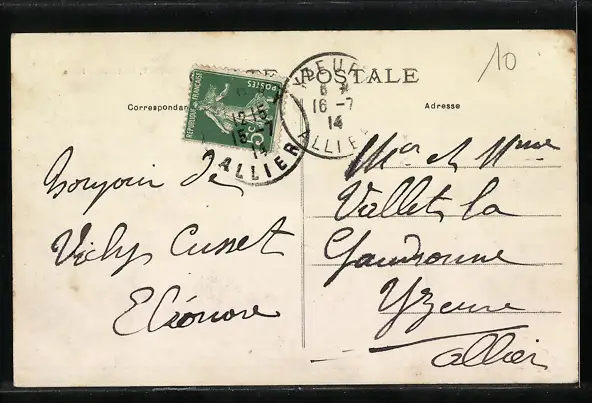 10
POSTALE
Correspondan
Adresse
REPUBLIQUE FRANÇAISE
POSTES
5
12 15
15-7
14
ALLIER
YZEURE
8
16-7
14
ALLIER
Bonjour de
Vichy Cusset
Eléonore
Mr et Mme
Vallet la
Yzeure
Allier